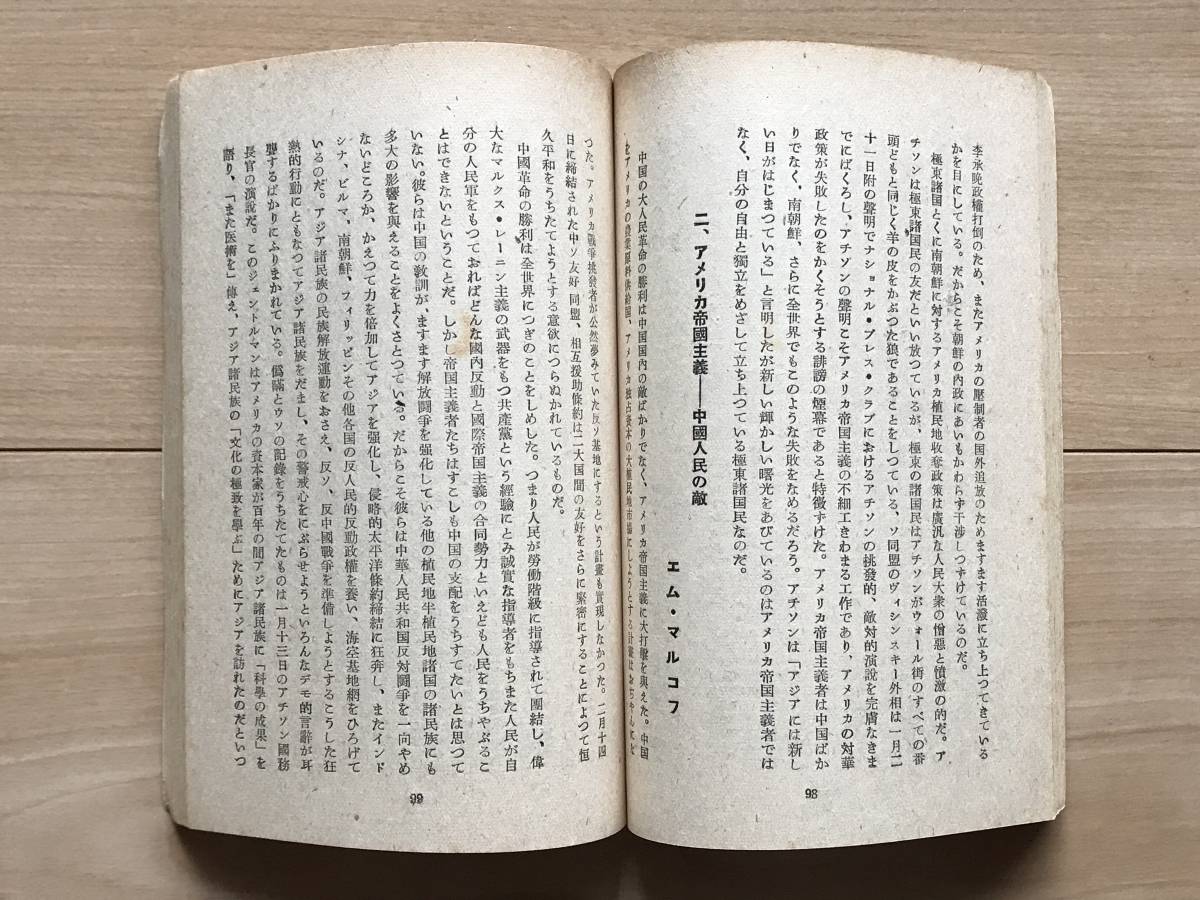 李承晩政權打倒のため、またアメリカの壓制者の国外追放のためますます活潑に立ち上つてきている
かを目にしている。だからこそ朝鮮の内政にあいもかわらず干渉しつずけているのだ。
極東諸国とくに南朝鮮に対するアメリカ植民地收奪政策は廣汎な人民大衆の憎惡と憤激の的だ。ア
チソンは極東諸国民の友だといい放つているが、極東の諸国民はアチソンがウォール街のすべての番
頭どもと同じく羊の皮をかぶつた狼であることをしつている、ソ同盟のヴィシンスキー外相は一月二
十一日附の聲明でナショナル・プレス・クラブにおけるアチソンの挑發的、敵対的演説を完膚なきま
でにばくろし、アチソンの聲明こそアメリカ帝国主義の不細工きわまる工作であり、アメリカの対華
政策が失敗したのをかくそうとする誹謗の煙幕であると特徴ずけた。アメリカ帝国主義者は中国ばか
りでなく、南朝鮮、さらに全世界でもこのような失敗をなめるだろう。アチソンは「アジアには新し
い日がはじまつている」と言明したが新しい輝かしい曙光をあびているのはアメリカ帝国主義者では
なく、自分の自由と獨立をめざして立ち上つている極東諸国民なのだ。
二、アメリカ帝國主義——中國人民の敵
エム・マルコフ
中国の大人民革命の勝利は中国国内の敵ばかりでなく、アメリカ帝国主義に大打撃を與えた。中国
をアメリカの農業原料供給国、アメリカ独占資本の大植民地市場にしようとする計畫は
98
つた。アメリカ戰爭挑發者が公然夢みていた反ソ基地にするという計畫も實現しなかつた。二月十四
日に締結された中ソ友好 同盟、相互援助條約は二大国間の友好をさらに緊密にすることによつて恒
久平和をうちたてようとする意欲につらぬかれているものだ。
中國革命の勝利は全世界につぎのことをしめした。つまり人民が勞働階級に指導されて團結し、偉
大なマルクス・レーニン主義の武器をもつ共産黨という經驗にとみ誠實な指導者をもちまた人民が自
分の人民軍をもつておればどんな國内反動と國際帝国主義の合同勢力といえども人民をうちやぶるこ
とはできないということだ。しかし帝国主義者たちはすこしも中国の支配をうちすてたいとは思つて
いない。彼らは中国の教訓が、ますます解放闘争を强化している他の植民地半植民地諸国の諸民族にも
多大の影響を與えることをよくさとつている。だからこそ彼らは中華人民共和国反対闘争を一向やめ
ないどころか、かえつて力を倍加してアジアを强化し、侵略的太平洋條約締結に狂奔し、またインド
シナ、ビルマ、南朝鮮、フィリッピンその他各国の反人民的反動政權を養い、海空基地網をひろげて
いるのだ。アジア諸民族の民族解放運動をおさえ、反ソ、反中國戰爭を準備しようとするこうした狂
熱的行動にともなつてアジア諸民族をだまし、その警戒心をにぶらせようといろんなデモ的言辭が耳
襲するばかりにふりまかれている。僞瞞とウソの記錄をうちたてたものは一月十三日のアチソン國務
長官の演説だ。このジェントルマンはアメリカの資本家が百年の間アジア諸民族に「科學の成果」を
語り、「また医術を」傳え、アジア諸民族の「文化の極致を學ぶ」ためにアジアを訪れたのだといつ
99